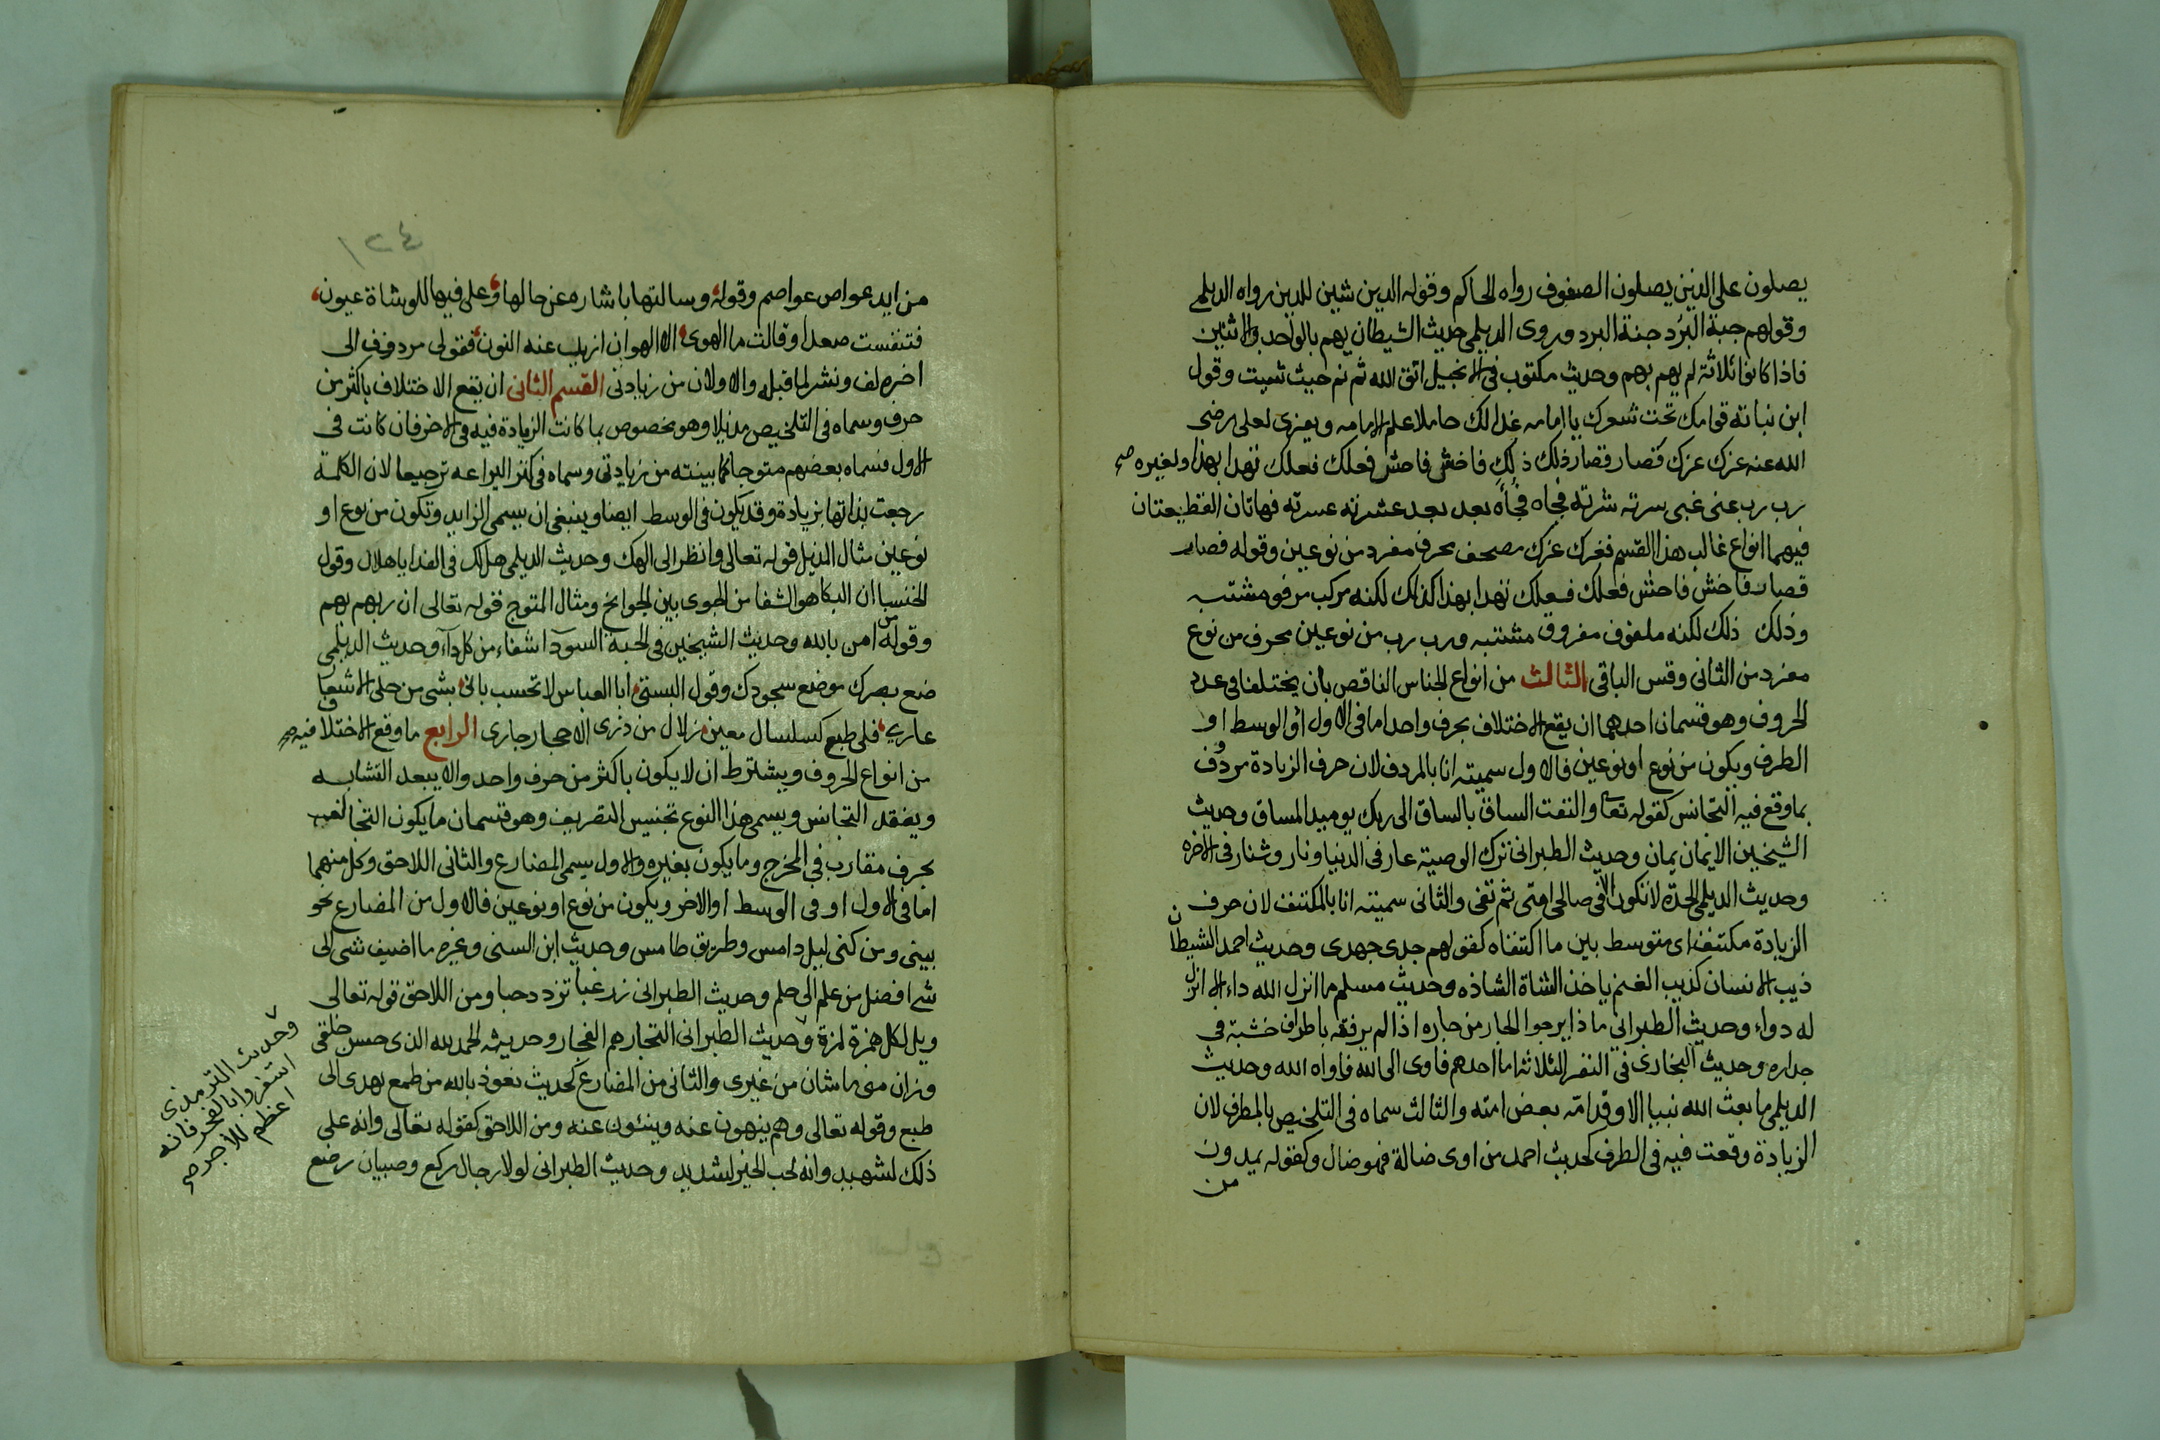 يصلون على الذين يصلون الصفوف رواه الحاكم وقوله الدين شين للدين رواه الديلمي
وقولهم جبة البرد جنة البرد وروى الديلمي حديث الشيطان يهم بالواحد والاثنين
فاذا كانوا ثلاثة لم يهم بهم وحديث مكتوب في الانجيل اتق الله ثم نم حيث شيت وقول
ابن نباته قوامك تحت شعرك يا امامه غدا لك حاملا علم الامامه ويعزى لعلى رضى
الله عنه غرك عزك فصار قصار ذلك ذلك فاخش فاحش فعلك فعلك تهدا بهذا ولغيره صح
رب رب غنى غبى سرته شرته فجاه فجأه بعد بعد عشرته عسرته فهاتان القطيعتان
فيهما انواع غالب هذا القسم فغرك عزك مصحف محرف مفرد من نوعين وقوله فصار
قصار فاخش فاحش فعلك فعلك تهدا بهذا كذلك لكنه مركب مرفو مشتبه
وذلك ذلك لكنه ملفوف مفروق مشتبه ورب رب من نوعين محرف من نوع
مفرد من الثاني وقس الباقي الثالث من انواع الجناس الناقص بان يختلفا في عدد
الحروف وهو قسمان احدهما ان يقع الاختلاف بحرف واحد اما في الاول او الوسط او
الطرف ويكون من نوع او نوعين فالاول سميته انا بالمردف لان حرف الزيادة مردوف
بما وقع فيه التجانس كقوله تعا والتفت الساق بالساق الى ربك يوميد المساق وحديث
الشيخين الايمان يمان وحديث الطبراني ترك الوصية عار في الدنيا ونار وشنار في الاخره
وحديث الديلمي الحدة لا تكون الا في صالحي امتى ثم تفى والثانى سميته انا بالمكتنف لان حرف
الزيادة مكتنف اى متوسط بين ما اكتنفاه كقولهم جدى جهدى وحديث احمد الشيطان
ذيب الانسان كذيب الغنم ياخذ الشاة الشاذه وحديث مسلم ما انزل الله داء الا انزل
له دواء وحديث الطبراني ما ذا يرجوا الجار من جاره اذا لم يرفقه باطراف خشبة في
جداره وحديث البخارى في النفر الثلاثة اما احدهم فاوى الى الله فاواه الله وحديث
الديلمي ما بعث الله نبيا الا وقد امّه بعض امته والثالث سماه في التلخيص بالمطرف لان
الزيادة وقعت فيه في الطرف كحديث احمد من اوى ضالة فهو ضال وكقوله يمدون
من
من ايد عواص عواصم وقوله وسالتها باشارة عن حالها وعلى فيها للوشاة عيون
فتنفست صعدا وقالت ما الهوى الا الهوان ازيل عنه النون فقولى مردوف الى
اخره لف ونشر لما قبله والاولان من زيادتى القسم الثانى ان يقع الاختلاف باكثر من
حرف وسماه في التلخيص مذيلا وهو مخصوص بما كانت الزيادة فيه في الاخر فان كانت في
الاول فسماه بعضهم متوجا كما بينته من زيادتى وسماه في كنز البراعه ترجيعا لان الكلمة
رجعت بذاتها بزيادة وقد يكون في الوسط ايضا وينبغى ان يسمى الزايد وتكون من نوع او
نوعين مثال المذيل قوله تعالى وانظر الى الهك وحديث الديلمي هل لك في الغدا يا هلال وقول
الخنسا ان البكا هو الشفا من الجوى بين الجوانح ومثال المتوج قوله تعالى ان ربهم بهم
وقوله من امن بالله وحديث الشيخين في الحبة السودا شفاء من كل داء وحديث الديلمي
ضع بصرك موضع سجودك وقول البستى ابا العباس لا تحسب بانى بشى من حلى الاشعار
عارى فلى طبع كسلسال معين زلال من ذرى الاحجار جارى الرابع ما وقع الاختلاف فيه صح
من انواع الحروف ويشترط ان لا يكون باكثر من حرف واحد والا يبعد التشابه
ويفقد التجانس ويسمى هذا النوع تجنيس التصريف وهو قسمان ما يكون التخالف
بحرف مقارب في المخرج وما يكون بغيره والاول يسمى المضارع والثانى اللاحق وكل منهما
اما في الاول او في الوسط او الاخر ويكون من نوع او نوعين فالاول من المضارع نحو
بينى وبين كنى ليل دامس وطريق طامس وحديث ابن السنى وغيره ما اضيف شى الى
شى افضل من علم الى حلم وحديث الطبراني زر غبا تزدد حبا ومن اللاحق قوله تعالى
ويل لكل همزة لمزة وحديث الطبراني التجار هم الفجار وحديثه الحمد لله الذى حسن خلقى
وزان منى ما شان من غيرى والثانى من المضارع كحديث نعوذ بالله من طمع يهدى الى
طبع وقوله تعالى وهم ينهون عنه وينئون عنه ومن اللاحق كقوله تعالى وانه على
ذلك لشهيد وانه لحب الخير لشديد وحديث الطبراني لولا رجال ركع وصبيان رضع
وحديث الترمذى
اسفروا بالفجر فانه
اعظم للاجر صح